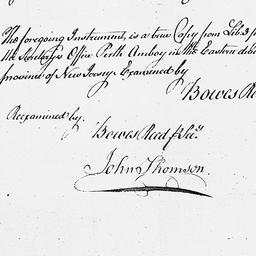 The foregoing Instrument, is a true Copy from Lib: 3 f
the Secretarys Office Perth Amboy in the Eastern
province of New Jersey Examined by
Bowes Re
Reexamined by.
Bowes Reed Secy.
John Thomson.